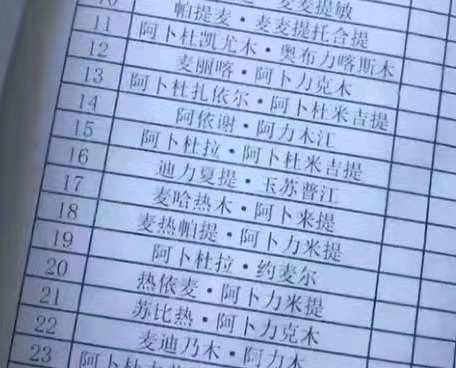 麦麦提敏
10 帕提麦·麦麦提托合提
11 阿卜杜凯尤木·奥布力喀斯木
12 麦丽喀·阿卜力克木
13 阿卜杜扎依尔·阿卜杜米吉提
14 阿依谢·阿力木江
15 阿卜杜拉·阿卜杜米吉提
16 迪力夏提·玉苏普江
17 麦哈热木·阿卜来提
18 麦热帕提·阿卜力米提
19 阿卜杜拉·约麦尔
20 热依麦·阿卜力米提
21 苏比热·阿卜力克木
22 麦迪乃木·阿力木
23 阿卜杜